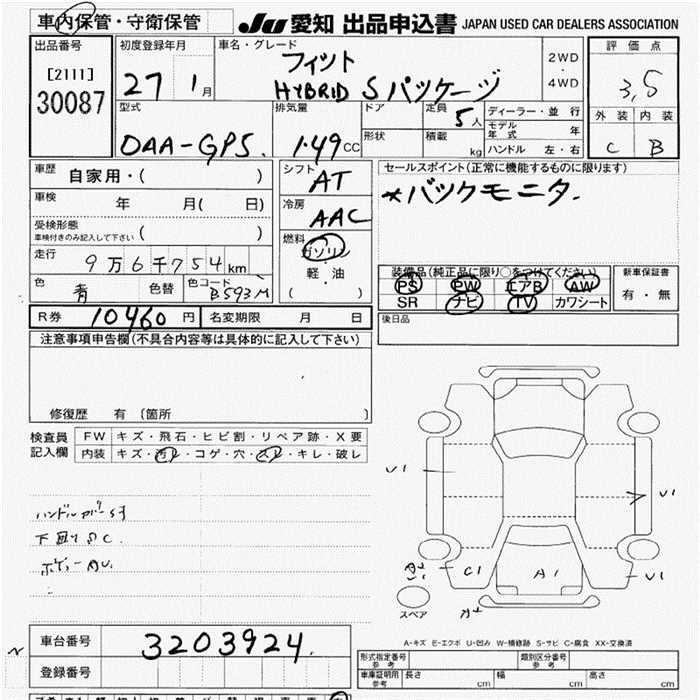 車内保管・守衛保管
JU 愛知 出品申込書 JAPAN USED CAR DEALERS ASSOCIATION
出品番号
[2111]
30087
初度登録年月
27 1月
車名・グレード
フィット
HYBRID Sパッケージ
2WD
・
4WD
評価点
3,5
外装 内装
C B
型式
DAA-GP5.
排気量
1.49cc
ドア
形状
定員
5人
積載
kg
ディーラー・並行
モデル年式 年
ハンドル 左・右
車歴
自家用・( )
車検
年 月( 日)
受検形態
車検付きのみ記入して下さい ( )
走行
9万6千754km
色
青
色替
色コード
B593M
シフト
AT
冷房
AAC
燃料
ガソリン
軽・油
( )
セールスポイント(正常に機能するものに限ります)
*バックモニタ.
装備品(純正品に限り○をつけてください)
PS PW エアB AW
SR ナビ TV カワシート
新車保証書
有・無
R券 10460円
名変期限 月 日
後日品
注意事項申告欄(不具合内容等は具体的に記入して下さい)
修復歴 有 〔箇所 〕
検査員
記入欄
FW キズ・飛石・ヒビ割・リペア跡・X要
内装 キズ・汚レ・コゲ・穴・スレ・キレ・破レ
下回りSC.
U1
U1
C1
A1
U1
スペア
A-キズ E-エクボ U-凹み W-補修跡 S-サビ C-腐食 XX-交換済
車台番号
3203924.
登録番号
形式指定番号
参考
類別区分番号
参考
車庫証明用
参考
長さ cm
幅 cm
高さ cm